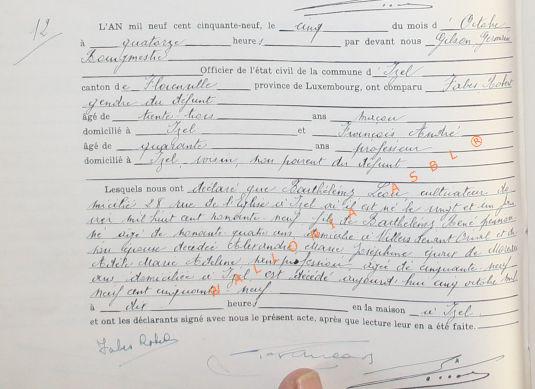 12
L'AN mil neuf cent cinquante-neuf, le cinq du mois d'Octobre
à quatorze heures par devant nous Gilson, Germain
Bourgmestre
Officier de l'état civil de la commune d'Izel
canton de Florenville province de Luxembourg, ont comparu Fabes Robert
gendre du défunt
âgé de trente-trois ans maçon
domicilié à Izel et François André
âgé de quarante ans professeur
domicilié à Izel, voisin, non parent du défunt
Lesquels nous ont déclaré que Barthélemy Léon cultivateur do
micilié 28 rue de l'église à Izel où il est né le vingt et un
vier mil huit cent nonante neuf fils de Barthélemy René pension
né âgé de nonante quatre ans domicilié à Villers devant Orval et de
son épouse décédée Alexandre Marie Joséphine
Marie Adeline sans profession, âgée de cinquante neuf
ans domiciliée à Izel est décédé aujourd'hui cinq octobre mil
neuf cent cinquante neuf
à dix heures en la maison à Izel
et ont les déclarants signé avec nous le présent acte, après que lecture leur en a été faite.
Fabes Robert
François
WALLONIA ASBL ®